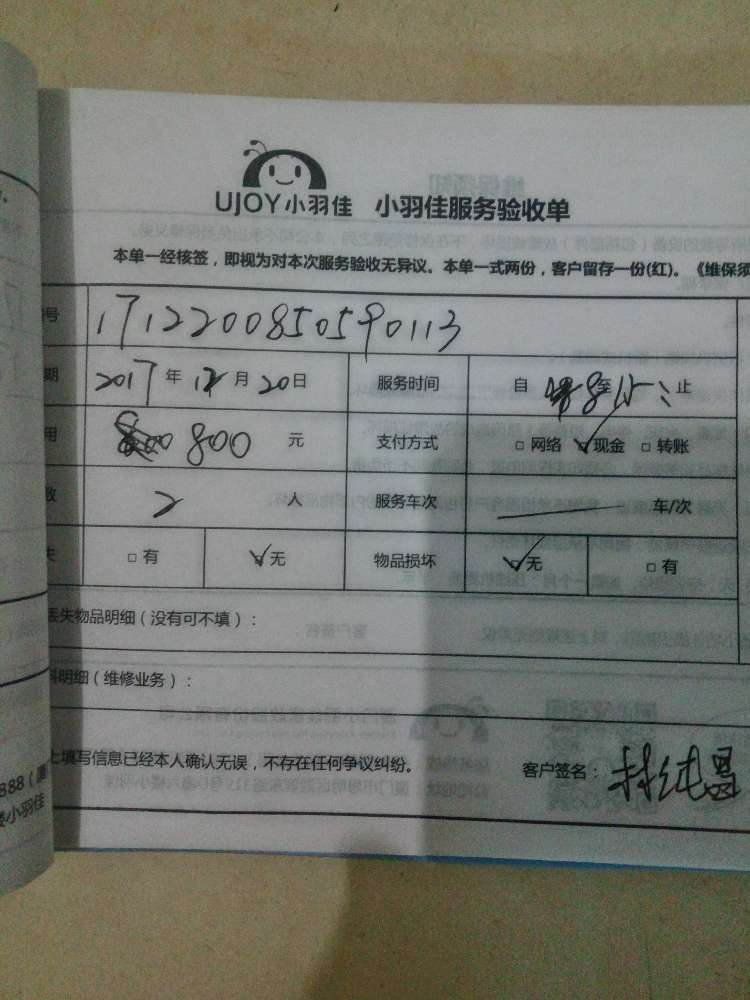 UJOY小羽佳 小羽佳服务验收单
本单一经核签，即视为对本次服务验收无异议。本单一式两份，客户留存一份(红)。《维保须
号 1712200850590113
期 2017 年 12 月 20 日 服务时间 自 至 止
用 800 元 支付方式 □ 网络 ☑ 现金 □ 转账
数 2 人 服务车次 车/次
失 □ 有 ☑ 无 物品损坏 ☑ 无 □ 有
丢失物品明细（没有可不填）：
料明细（维修业务）：
上填写信息已经本人确认无误，不存在任何争议纠纷。 客户签名：
888（厦
小羽佳